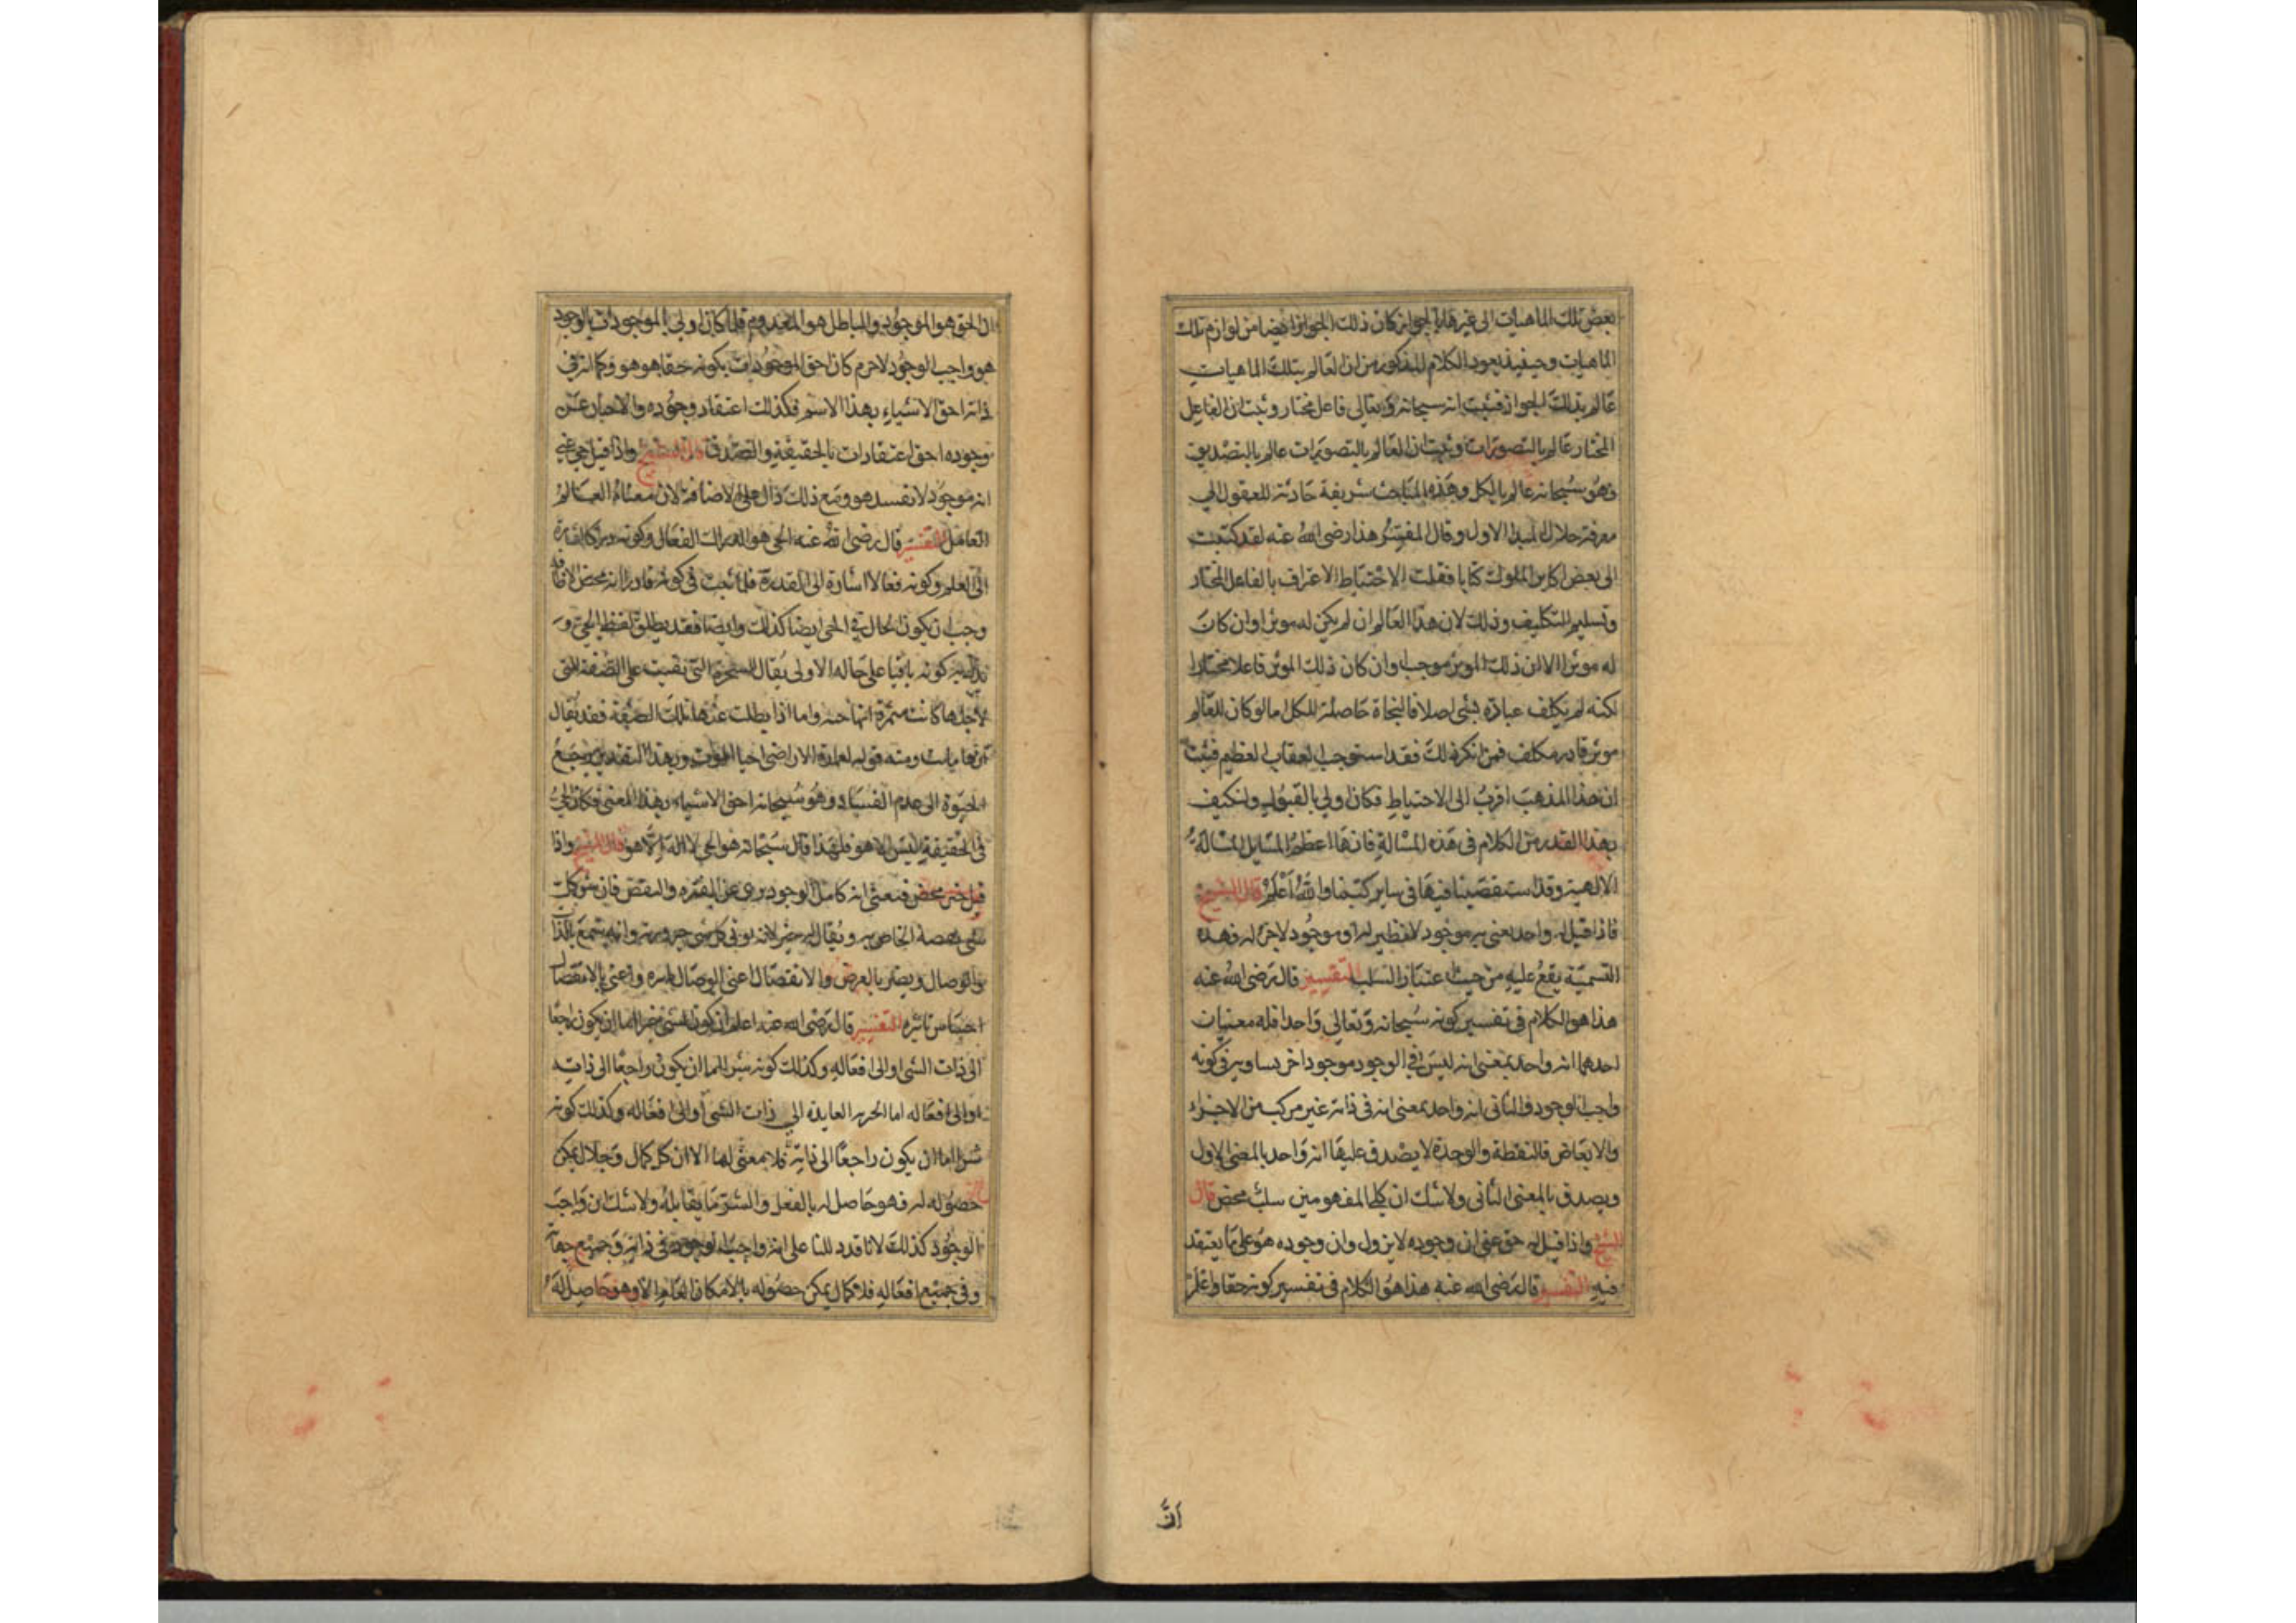 بعض تلك الماهيات الى غيرها بالجواز كان ذلك الجواز ايضا من لوازم تلك
الماهيات وحينيذ يعود الكلام المذكور من ان العالم بتلك الماهيات
عالم بذلك الجواز فثبت انه سبحانه وتعالى فاعل مختار وثبت ان الفاعل
المختار عالم بالتصورات وثبت ان العالم بالتصورات عالم بالتصديق
وهو سبحانه عالم بالكل وهذه المباحث شريفة جاذبة للعقول الى
معرفة جلال المبدا الاول وقال المفسر هذا رضى الله عنه لقد كتبت
الى بعض اكابر الملوك كتابا فقلت الاحتياط الاعتراف بالفاعل المختار
وتسليم التكليف وذلك لان هذا العالم ان لم يكن له موثر او ان كان
له موثر الا ان ذلك الموثر موجب او ان كان ذلك الموثر فاعلا مختارا
لكنه لم يكلف عباده بشى اصلا فالنجاة حاصلة للكل اما لو كان للعالم
موثر قادر مكلف فمن انكر ذلك فقد استوجب العقاب العظيم فثبت
ان هذا المذهب اقرب الى الاحتياط فكان اولى بالقبول ولنكتف
بهذا القدر من الكلام فى هذه المسالة فانها اعظم المسايل المسالة
الالهية وقد استقصينا فيها فى ساير كتبنا والله اعلم قال الشيخ
فاذا قيل له واحد يعنى به موجود لا نظير له او موجود لا جزء له فهذه
التسمية يقع عليه من حيث اعتبار السلب التفسير قال رضى الله عنه
هذا هو الكلام فى تفسير كونه سبحانه وتعالى واحدا فله معنيان
احدهما انه واحد بمعنى انه ليس فى الوجود موجود اخر يساويه فى كونه
واجب الوجود والثانى انه واحد بمعنى انه فى ذاته غير مركب من الاجزاء
والابعاض فالنقطة والوحدة لا يصدق عليها انه واحد بالمعنى الاول
ويصدق بالمعنى الثانى ولا شك ان كلا المفهومين سلب محض قال
الشيخ واذا قيل له حق عنى ان وجوده لا يزول وان وجوده هو على ما يعتقد
فيه التفسير قال رضى الله عنه هذا هو الكلام فى تفسير كونه حقا واعلم
ان
ان الحق هو الموجود والباطل هو المعدوم فلما كان اولى الموجودات بالوجود
هو واجب الوجود لا جرم كان احق الموجودات بكونه حقا هو هو وكما انه فى
ذاته احق الاشياء بهذا الاسم فكذلك اعتقاد وجوده والاخبار عن
وجوده احق اعتقادات بالحقيقة والصدق قال الشيخ واذا قيل حى عنى
انه موجود لا يفسد هو ومع ذلك دال على الاضافة لان معناه العالم
الفاعل التفسير قال رضى الله عنه الحى هو الدراك الفعال وكونه دراكا اشارة
الى العلم وكونه فعالا اشارة الى القدرة فلما ثبت فى كونه قادرا انه محض الاضافة
وجب ان يكون الحال فى الحى ايضا كذلك وايضا فقد يطلق لفظ الحى و
يراد به كونه باقيا على حاله الاولى يقال الشجرة التى بقيت على الصفة التى
لاجلها كانت مثمرة انها حية واما اذا بطلت عنها تلك الصفة فقد يقال
انها ماتت ومنه قولهم لعمارة الاراضى احيا الموت وبهذا التقدير يرجع
الحيوة الى عدم الفساد وهو سبحانه احق الاشياء بهذا المعنى فكان الحى
فى الحقيقة ليس الا هو فلهذا قال سبحانه هو الحى لا اله الا هو قال الشيخ واذا
قيل خير محض فنعنى انه كامل الوجود برى عن القوة والنقص فان شر كل
شى نقصه الخاص به ويقال له خير لانه يوتى كل شى خيريته وانه ينفع بالذات
والوصال ويضر بالعرض والانفصال اعنى بالوصال تاثيره واعنى بالانفصال
احتباس تاثيره التفسير قال رضى الله عنه اعلم ان كون الشى خيرا اما ان يكون راجعا
الى ذات الشى او الى افعاله وكذلك كونه شرا اما ان يكون راجعا الى ذاته
او الى افعاله اما الخيرية العايدة الى ذات الشى او الى افعاله وكذلك كونه
شرا اما ان يكون راجعا الى ذاته فلا معنى لها الا ان كل كمال وجلال يمكن
حصوله له فهو حاصل له بالفعل والشر ما يقابله ولا شك ان واجب
الوجود كذلك لانا قد دللنا على انه واجب الوجود فى ذاته وجميع جهاته
وفى جميع افعاله فلا كمال يمكن حصوله بالامكان العام الا وهو حاصل له